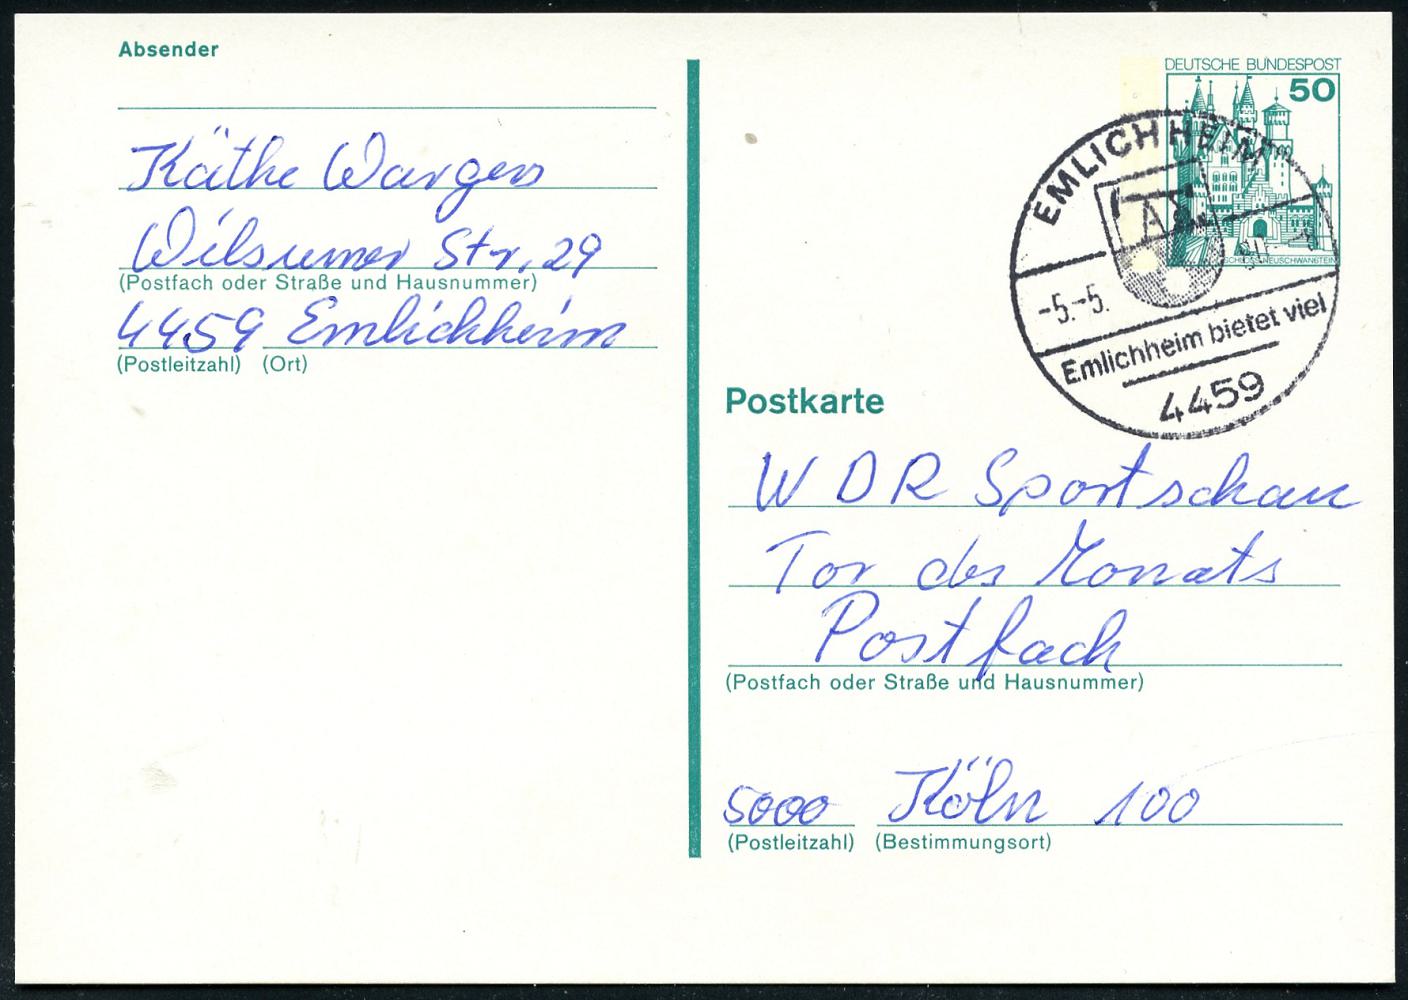 Absender
Käthe Wargers
Wilsumer Str. 29
(Postfach oder Straße und Hausnummer)
4459 Emlichheim
(Postleitzahl) (Ort)
DEUTSCHE BUNDESPOST
50
SCHLOSS NEUSCHWANSTEIN
EMLICHHEIM
-5.-5.
Emlichheim bietet viel
4459
Postkarte
WDR Sportschau
Tor des Monats
Postfach
(Postfach oder Straße und Hausnummer)
5000 Köln 100
(Postleitzahl) (Bestimmungsort)